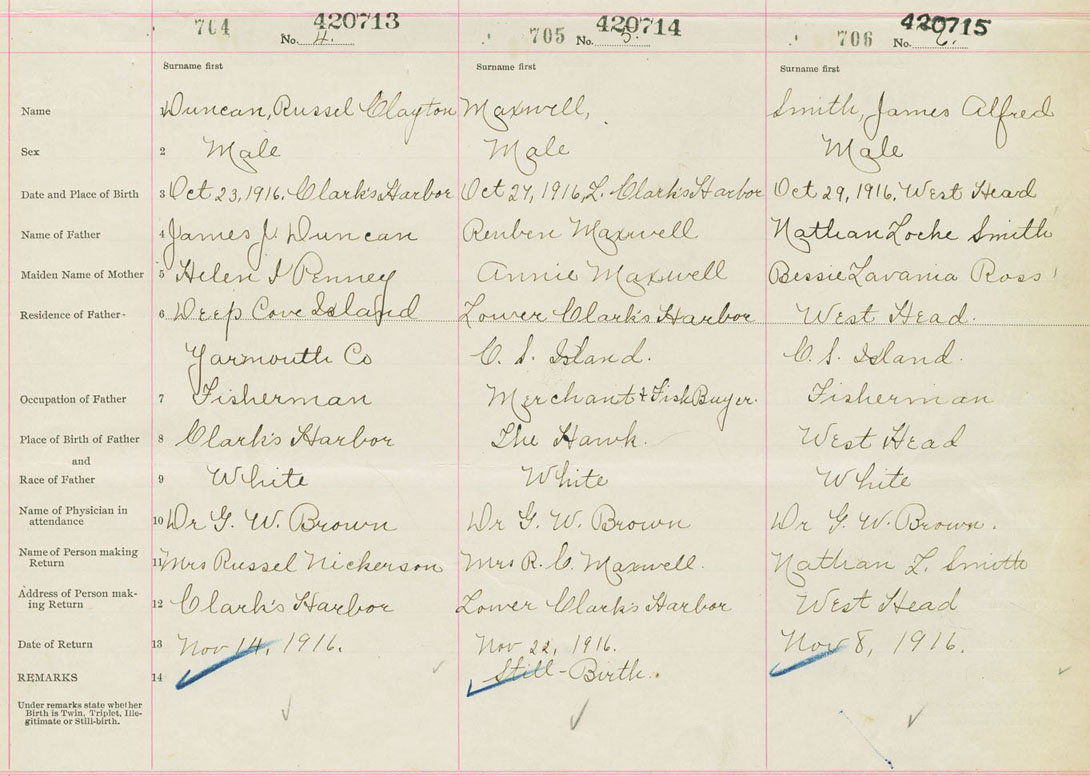 704 420713 705 420714 706 420715
No. 4. No. 5. No.
Surname first Surname first Surname first
Name 1 Duncan, Russel Clayton Maxwell, Smith, James Alfred
Sex 2 Male Male Male
Date and Place of Birth 3 Oct 23, 1916. Clark's Harbor Oct 27, 1916, L. Clark's Harbor Oct 29, 1916, West Head
Name of Father 4 James J. Duncan Reuben Maxwell Nathan Locke Smith
Maiden Name of Mother 5 Helen I Penney Annie Maxwell Bessie Lavania Ross
Residence of Father 6 Deep Cove Island Lower Clark's Harbor West Head.
Yarmouth Co C. S. Island. C. S. Island.
Occupation of Father 7 Fisherman Merchant & Fish Buyer. Fisherman
Place of Birth of Father 8 Clark's Harbor The Hawk. West Head
and
Race of Father 9 White White White
Name of Physician in
attendance 10 Dr G. W. Brown Dr G. W. Brown Dr G. W. Brown.
Name of Person making
Return 11 Mrs Russel Nickerson Mrs R. C. Maxwell. Nathan L. Smith
Address of Person mak-
ing Return 12 Clark's Harbor Lower Clark's Harbor West Head
Date of Return 13 Nov 14, 1916. Nov 22, 1916. Nov 8, 1916.
REMARKS 14 Still-Birth.
Under remarks state whether
Birth is Twin, Triplet, Ille-
gitimate or Still-birth.